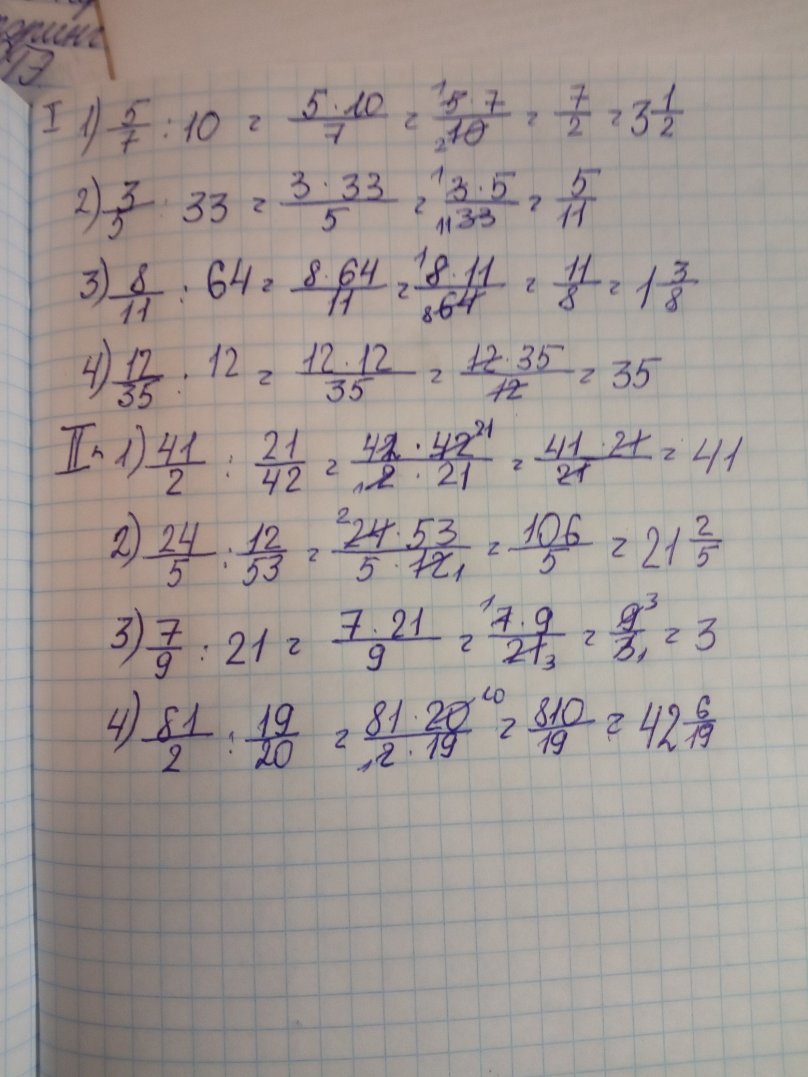 оринг
I 1) 5/7 : 10 = 5·10/7 = 5·7/10 = 7/2 = 3 1/2
2) 3/5 : 33 = 3·33/5 = 3·5/33 = 5/11
3) 8/11 : 64 = 8·64/11 = 8·11/64 = 11/8 = 1 3/8
4) 12/35 : 12 = 12·12/35 = 12·35/12 = 35
II 1) 41/2 : 21/42 = 42·42/2·21 = 41·21/21 = 41
2) 24/5 : 12/53 = 24·53/5·12 = 106/5 = 21 2/5
3) 7/9 : 21 = 7·21/9 = 7·9/21 = 9/3 = 3
4) 81/2 : 19/20 = 81·20/2·19 = 810/19 = 42 6/19